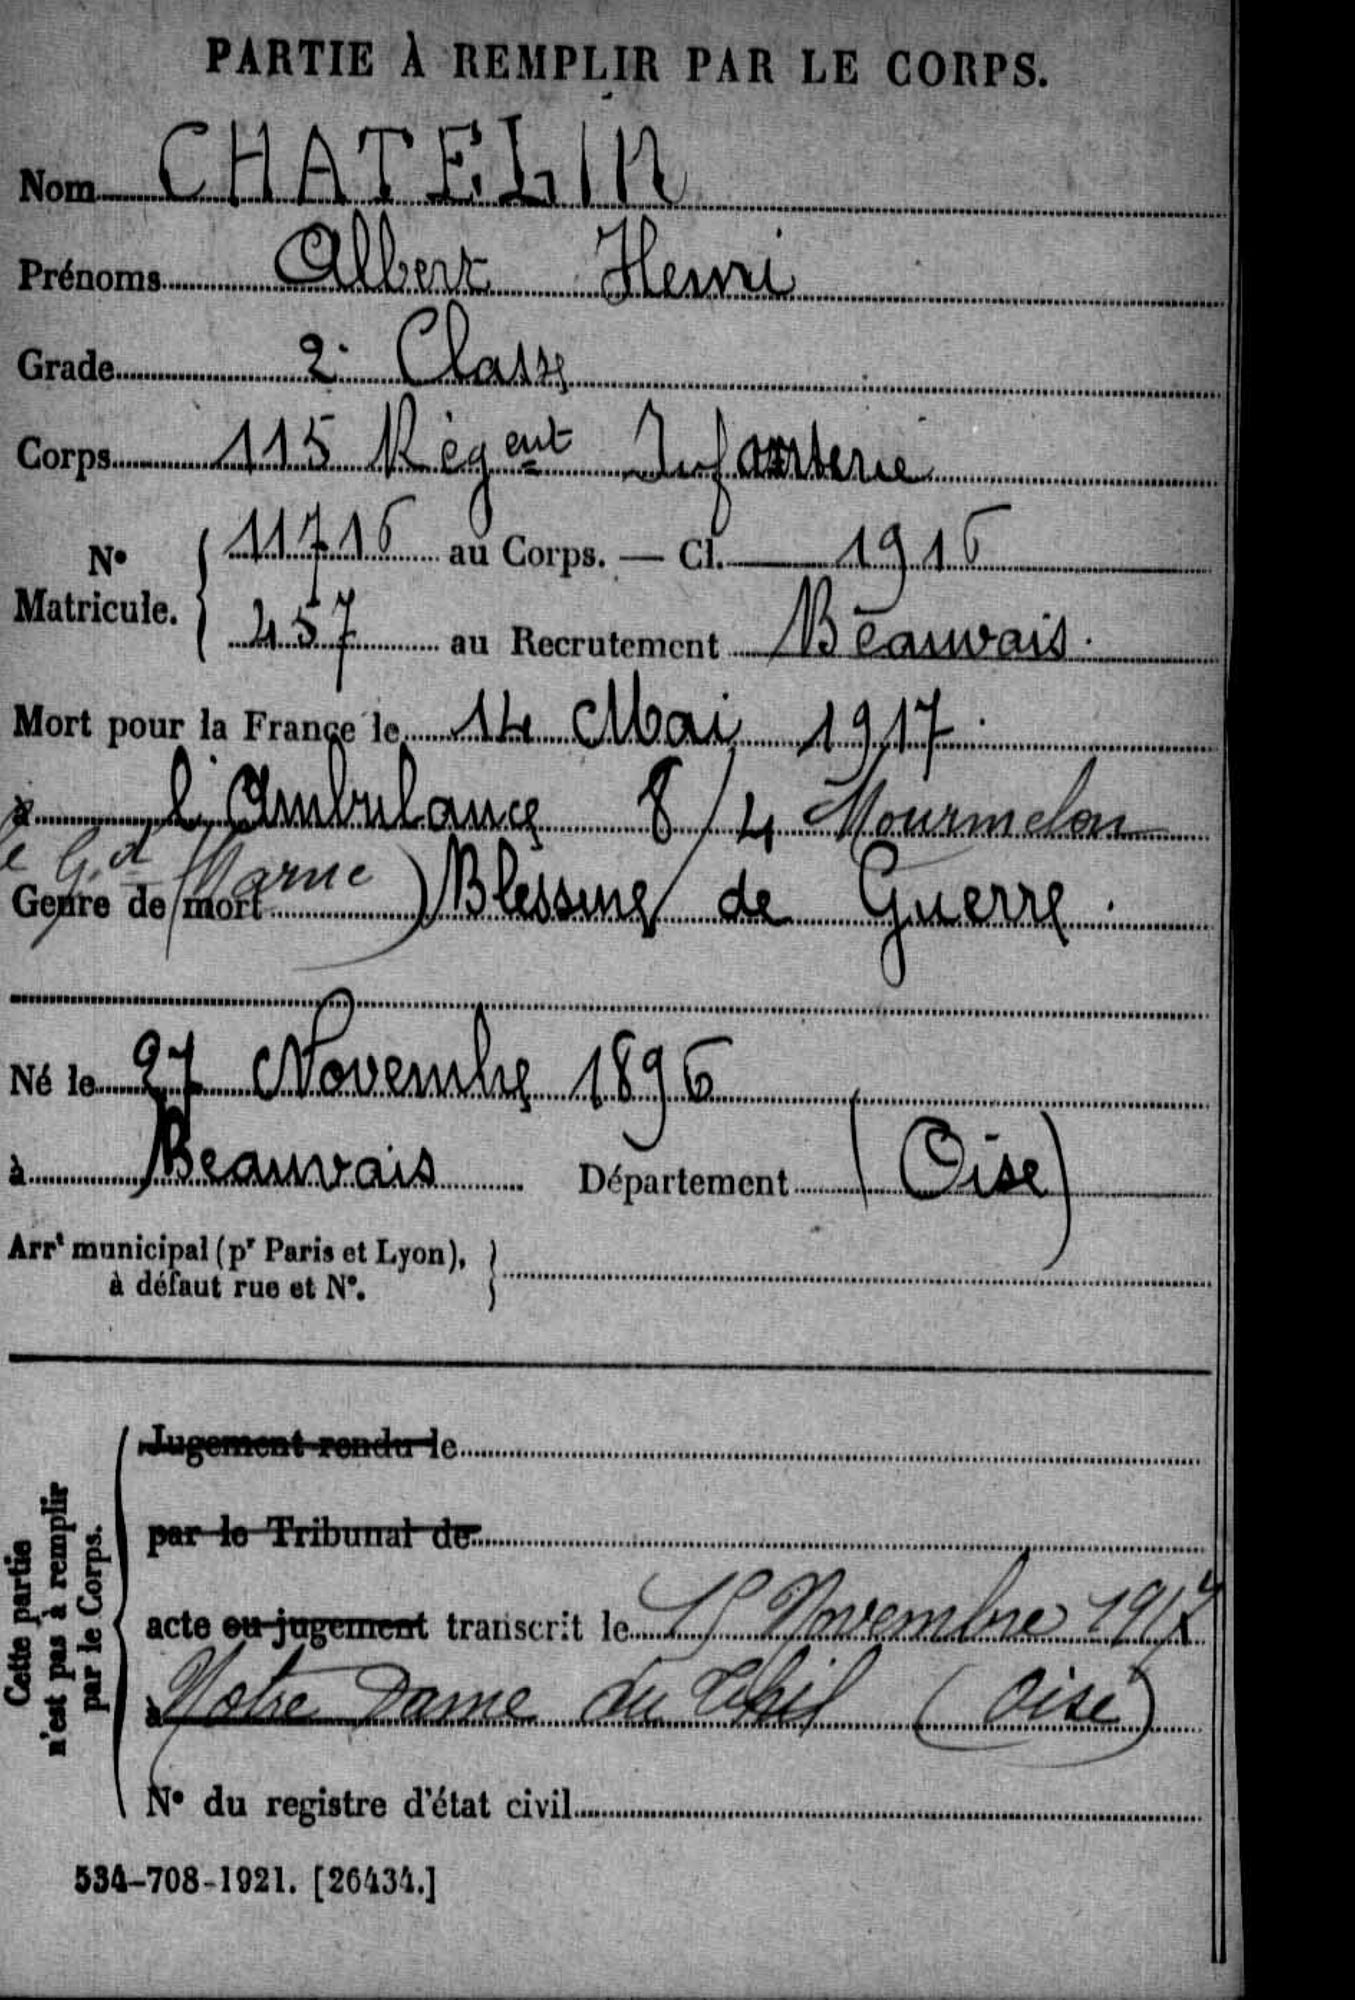 PARTIE À REMPLIR PAR LE CORPS.
Nom CHATELIN
Prénoms Albert Henri
Grade 2e Classe
Corps 115 Régent Infanterie
N° Matricule. { 11716 au Corps. — Cl. 1916
457 au Recrutement Beauvais.
Mort pour la France le 14 Mai 1917.
à l'Ambulance 8/4 Mourmelon
le Gd (Marne)
Genre de mort Blessure de Guerre.
Né le 27 Novembre 1896
à Beauvais Département (Oise)
Arrt municipal (pr Paris et Lyon), à défaut rue et N°. }
Cette partie n'est pas à remplir par le Corps.
Jugement rendu le
par le Tribunal de
acte ou jugement transcrit le 15 Novembre 1917
à Notre Dame du Thil (Oise)
N° du registre d'état civil
534-708-1921. [26434.]